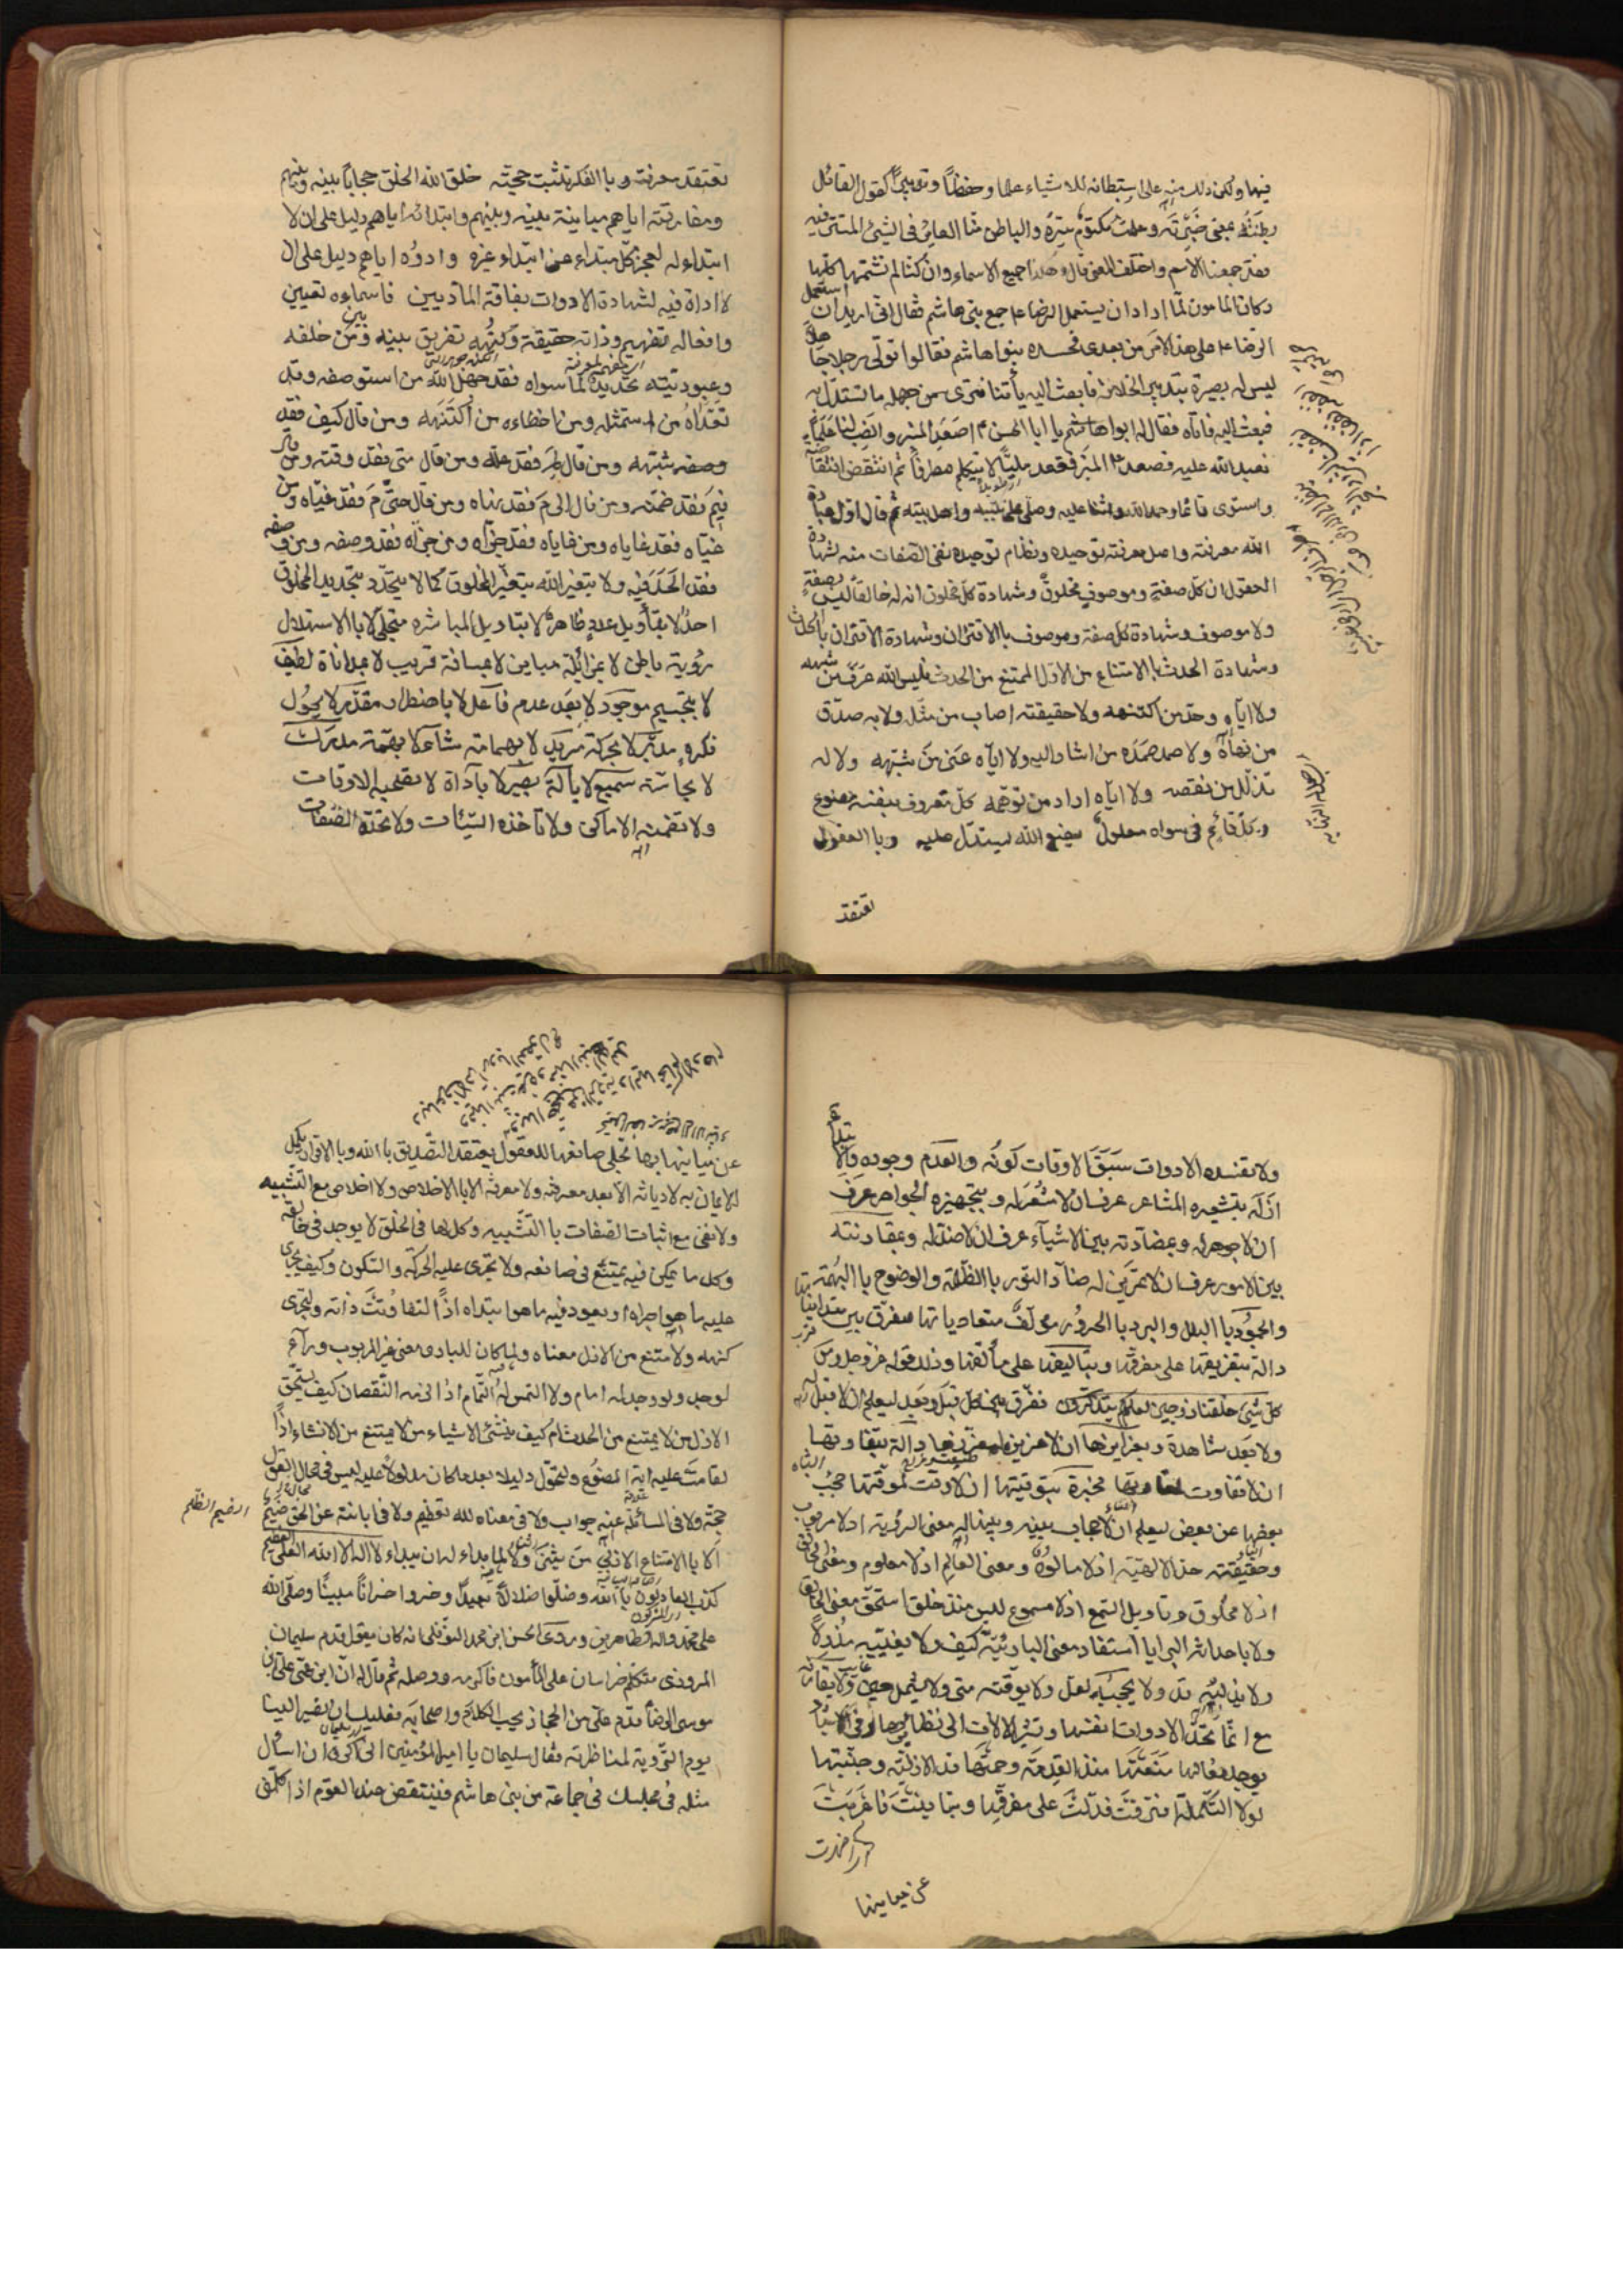 فيها ولكن ذلك منه على استبطانه للاشياء علما وحفظا وتدبيرا كقول القائل
بطنته بمعنى خبرته وعلمت مكتوم سره والباطن منا الغائر في الشئ المستتر فيه
فقد جمعنا الاسم واختلف المعنى قال وهكذا جميع الاسماء وان كنا لم نسمها كلها
وكان المامون لما اراد ان يستعمل الرضا ع جمع بني هاشم فقال اني اريد ان استعمل
الرضا ع على هذا الامر من بعدى فحسده بنوا هاشم فقالوا تولى رجلا جاهلا
ليس له بصيرة بتدبير الخلافة فابعث اليه يأتنا فترى من جهله ما تستدل به
فبعث اليه فاتاه فقال له بنوا هاشم يا ابا الحسن اصعد المنبر وانصب لنا علما
نعبد الله عليه فصعد ع المنبر فقعد مليا لا يتكلم مطرقا ثم انتفض انتفاضة
واستوى قائما وحمد الله واثنا عليه وصلى على نبيه واهل بيته ثم قال اول عبادة
الله معرفته واصل معرفته توحيده ونظام توحيده نفى الصفات عنه لشهادة
العقول ان كل صفة وموصوف مخلوق وشهادة كل مخلوق ان له خالقا ليس بصفة
ولا موصوف وشهادة كل صفة وموصوف باالاقتران وشهادة الاقتران باالحدث
وشهادة الحدث باالامتناع من الازل الممتنع من الحدث فليس الله عرف من شبهه
ولا اياه وحد من اكتنهه ولا حقيقته اصاب من مثله ولا به صدق
من نهاه ولا صمد صمده من اشار اليه ولا اياه عنى من شبهه ولا له
تذلل من بعضه ولا اياه اراد من توهمه كل معروف بنفسه مصنوع
وكل قائم في سواه معلول بصنع الله يستدل عليه وباالعقول
تعتقد
تعتقد معرفته وباالفكرة تثبت حجته خلق الله الخلق حجابا بينه وبينهم
ومفارقته اياهم مباينة بينه وبينهم وابتدائه اياهم دليل على ان لا
ابتداء له لعجز كل مبتداء عن ابتداء غيره وادوه اياهم دليل على ان
لا اداة فيه لشهادة الادوات بفاقة المادّيين فاسماءه تعبير
وافعاله تفهيم وذاته حقيقة وكنهه تفريق بينه وبين خلقه
وغيوره تحديد لما سواه فقد جهل الله من استوصفه وقد
تعداه من استمثله وقد اخطاءه من اكتنهه ومن قال كيف فقد
شبهه ومن قال لم فقد علله ومن قال متى فقد وقته ومن قال
فيم فقد ضمنه ومن قال الى م فقد نهاه ومن قال حتى م فقد غياه ومن
غياه فقد غاياه ومن غاياه فقد جزاه ومن جزاه فقد وصفه ومن وصفه
فقد الحد فيه ولا يتغير الله بتغير المخلوق كما لا يتحدد بتحديد المخلوق
احد لا بتأويل عدد ظاهر لا بتاويل المباشره متجلي لا باالاستهلال
رؤية باطن لا بمزائلة مباين لا بمسافة قريب لا بمداناة لطيف
لا بتجسيم موجود لا بعد عدم فاعل لا باضطرار مقدر لا بحول
فكرة مدبر لا بحركة مريد لا بهمامة شاء لا بهمة مدرك
لا بحاسة سميع لا بآلة بصير لا باداة لا تصحبه الاوقات
ولا تضمنه الاماكن ولا تأخذه السنات ولا تحده الصفات
ولا تفيده الادوات سبق الاوقات كونه والعدم وجوده والابتداء
ازله بتشعيره المشاعر عرف ان لا مشعر له وبتجهيزه الجواهر عرف
ان لا جوهر له وبمضادته بين الاشياء عرف ان لا ضد له وبمقارنته
بين الامور عرف ان لا قرين له ضاد النور باالظلمة والوضوح باالبهمة
والجمود باالبلل والبرد باالحرور مؤلف متعادياتها مفرق بين متدانياتها
دالة بتفريقها على مفرقها وبتاليفها على مألفها وذلك قوله عز وجل ومن
كل شئ خلقنا زوجين لعلكم تتذكرون ففرق بين كل قبل وبعد ليعلم ان لا قبل له
ولا بعد شاهدة بغرائزها ان لا غريزة لمغرزها دالة بتفاوتها
ان لا تفاوت لمفاوتها مخبرة بتوقيتها ان لا وقت لموقتها حجب
بعضها عن بعض ليعلم ان لا حجاب بينه وبينها له معنى الربوبية اذ لا مربوب
وحقيقته الالهية اذ لا مالوه ومعنى العالم اذ لا معلوم ومعنى الخالق
اذ لا مخلوق وتاويل السمع اذ لا مسموع ليس منذ خلق استحق معنى الخالق
ولا باحداثه البرايا استفاد معنى البارئية كيف ولا يغنيه مذ ولا
ولا يدنيه قد ولا يحجبه لعل ولا يوقته متى ولا يشمله حين ولا يقارنه
مع انما تحد الادوات انفسها وتشير الالات الى نظائرها وفي الاشياء
يوجد فعالها منعتها منذ القدمة وحمتها قد الازلية وجنبتها
لولا التكملة افترقت فدلت على مفرقها وتباينت فاعربت
عن مباينها
عن مباينها بها تجلى صانعها للعقول يعتقد التصديق باالله وباالاقرار يكمل
الايمان به لا ديانة الا بعد معرفة ولا معرفة الا باالاخلاص ولا اخلاص مع التشبيه
ولا نفى مع اثبات الصفات باالتشبيه وكل ما في الخلق لا يوجد في خالقه
وكل ما يمكن فيه يمتنع في صانعه ولا تجرى عليه الحركة والسكون وكيف يجرى
عليه ما هو اجراه او يعود فيه ما هو ابتداه اذا لتفاوتت ذاته ولتجزى
كنهه ولامتنع من الازل معناه ولما كان للبارى معنى غير المربوب وراء
لوجد ولو وجد له امام ولا التمس له التمام اذا لزمه النقصان كيف يستحق
الازل من لا يمتنع من الحدث ام كيف ينشئ الاشياء من لا يمتنع من الانشاء اذا
لقامت عليه اية المصنوع ولتحول دليلا بعد ما كان مدلولا عليه ليس في محال القول
حجة ولا في المسألة عنه جواب ولا في معناه لله تعظيم ولا في ابانته عن الحق ضيم
الضيم الظلم
الا باالامتناع الازلي من يثنى ولا لما بداء له ان يبداء لا اله الا الله العلي العظيم
كذب العادلون باالله وضلوا ضلالا بعيدا وخسروا خسرانا مبينا وصلى الله
على محمد واله الطاهرين وروى الحسن ابن محمد النوفلى انه كان يقول قدم سليمان
المروزى متكلم خراسان على المأمون فاكرمه ووصله ثم قال له ان ابن عمى علي بن
موسى الرضا قدم علي من الحجاز يحب الكلام واصحابه فعليك ان تصير الينا
يوم التروية لمناظرته فقال سليمان يا امير المؤمنين انى اكره ان اسأل
مثله في مجلسك في جماعة من بني هاشم فينتقض عند القوم اذا كلمنى